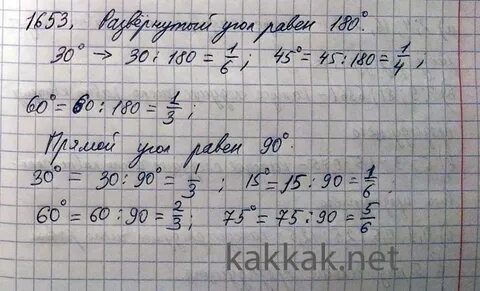 1653. Развёрнутый угол равен 180°.
30° → 30 : 180 = 1/6 ; 45° = 45 : 180 = 1/4 ;
60° = 60 : 180 = 1/3 ;
Прямой угол равен 90°.
30° = 30 : 90° = 1/3 ; 15° = 15 : 90 = 1/6 .
60° = 60 : 90 = 2/3 ; 75° = 75 : 90 = 5/6
kakkak.net